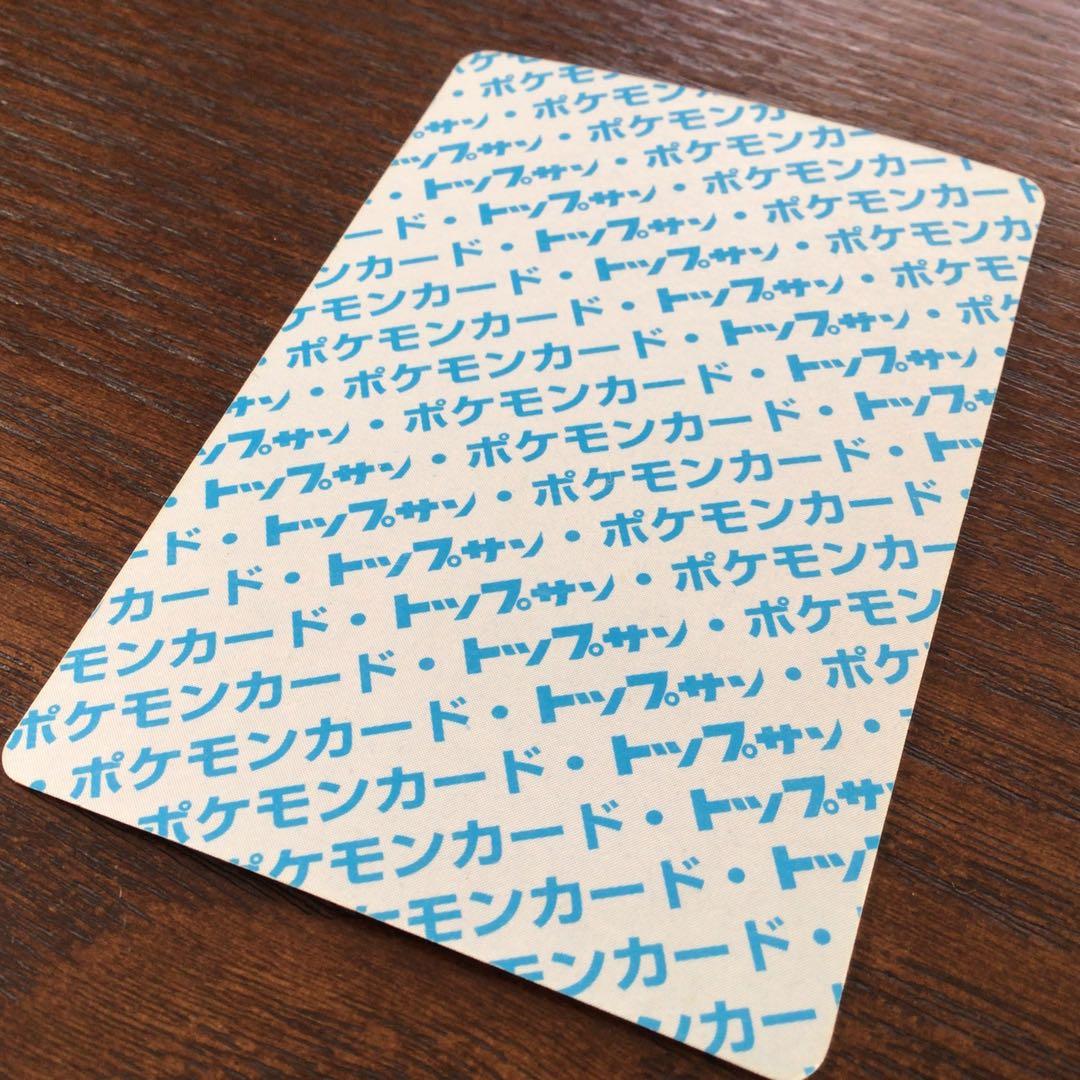 ケモ
・ポケモン
・ポケモンカ
トップサン・ポケモンカー
トップサン・ポケモンカー
・トップサン・ポケモンカード
ード・トップサン・ポケモンカード
ンカード・トップサン・ポケモンカ
ケモンカード・トップサン・ポケモ
・ポケモンカード・トップサン・ポケ
サン・ポケモンカード・トップサン・
ップサン・ポケモンカード・トップサ
・トップサン・ポケモンカード・トッ
ード・トップサン・ポケモンカード・
カード・トップサン・ポケモンカー
モンカード・トップサン・ポケモン
ポケモンカード・トップサン・ポケ
・ポケモンカード・トップサン・
ポケモンカード・トップサン・
ポケモンカード・トップサ
ケモンカード・トップ
モンカード・
ンカー